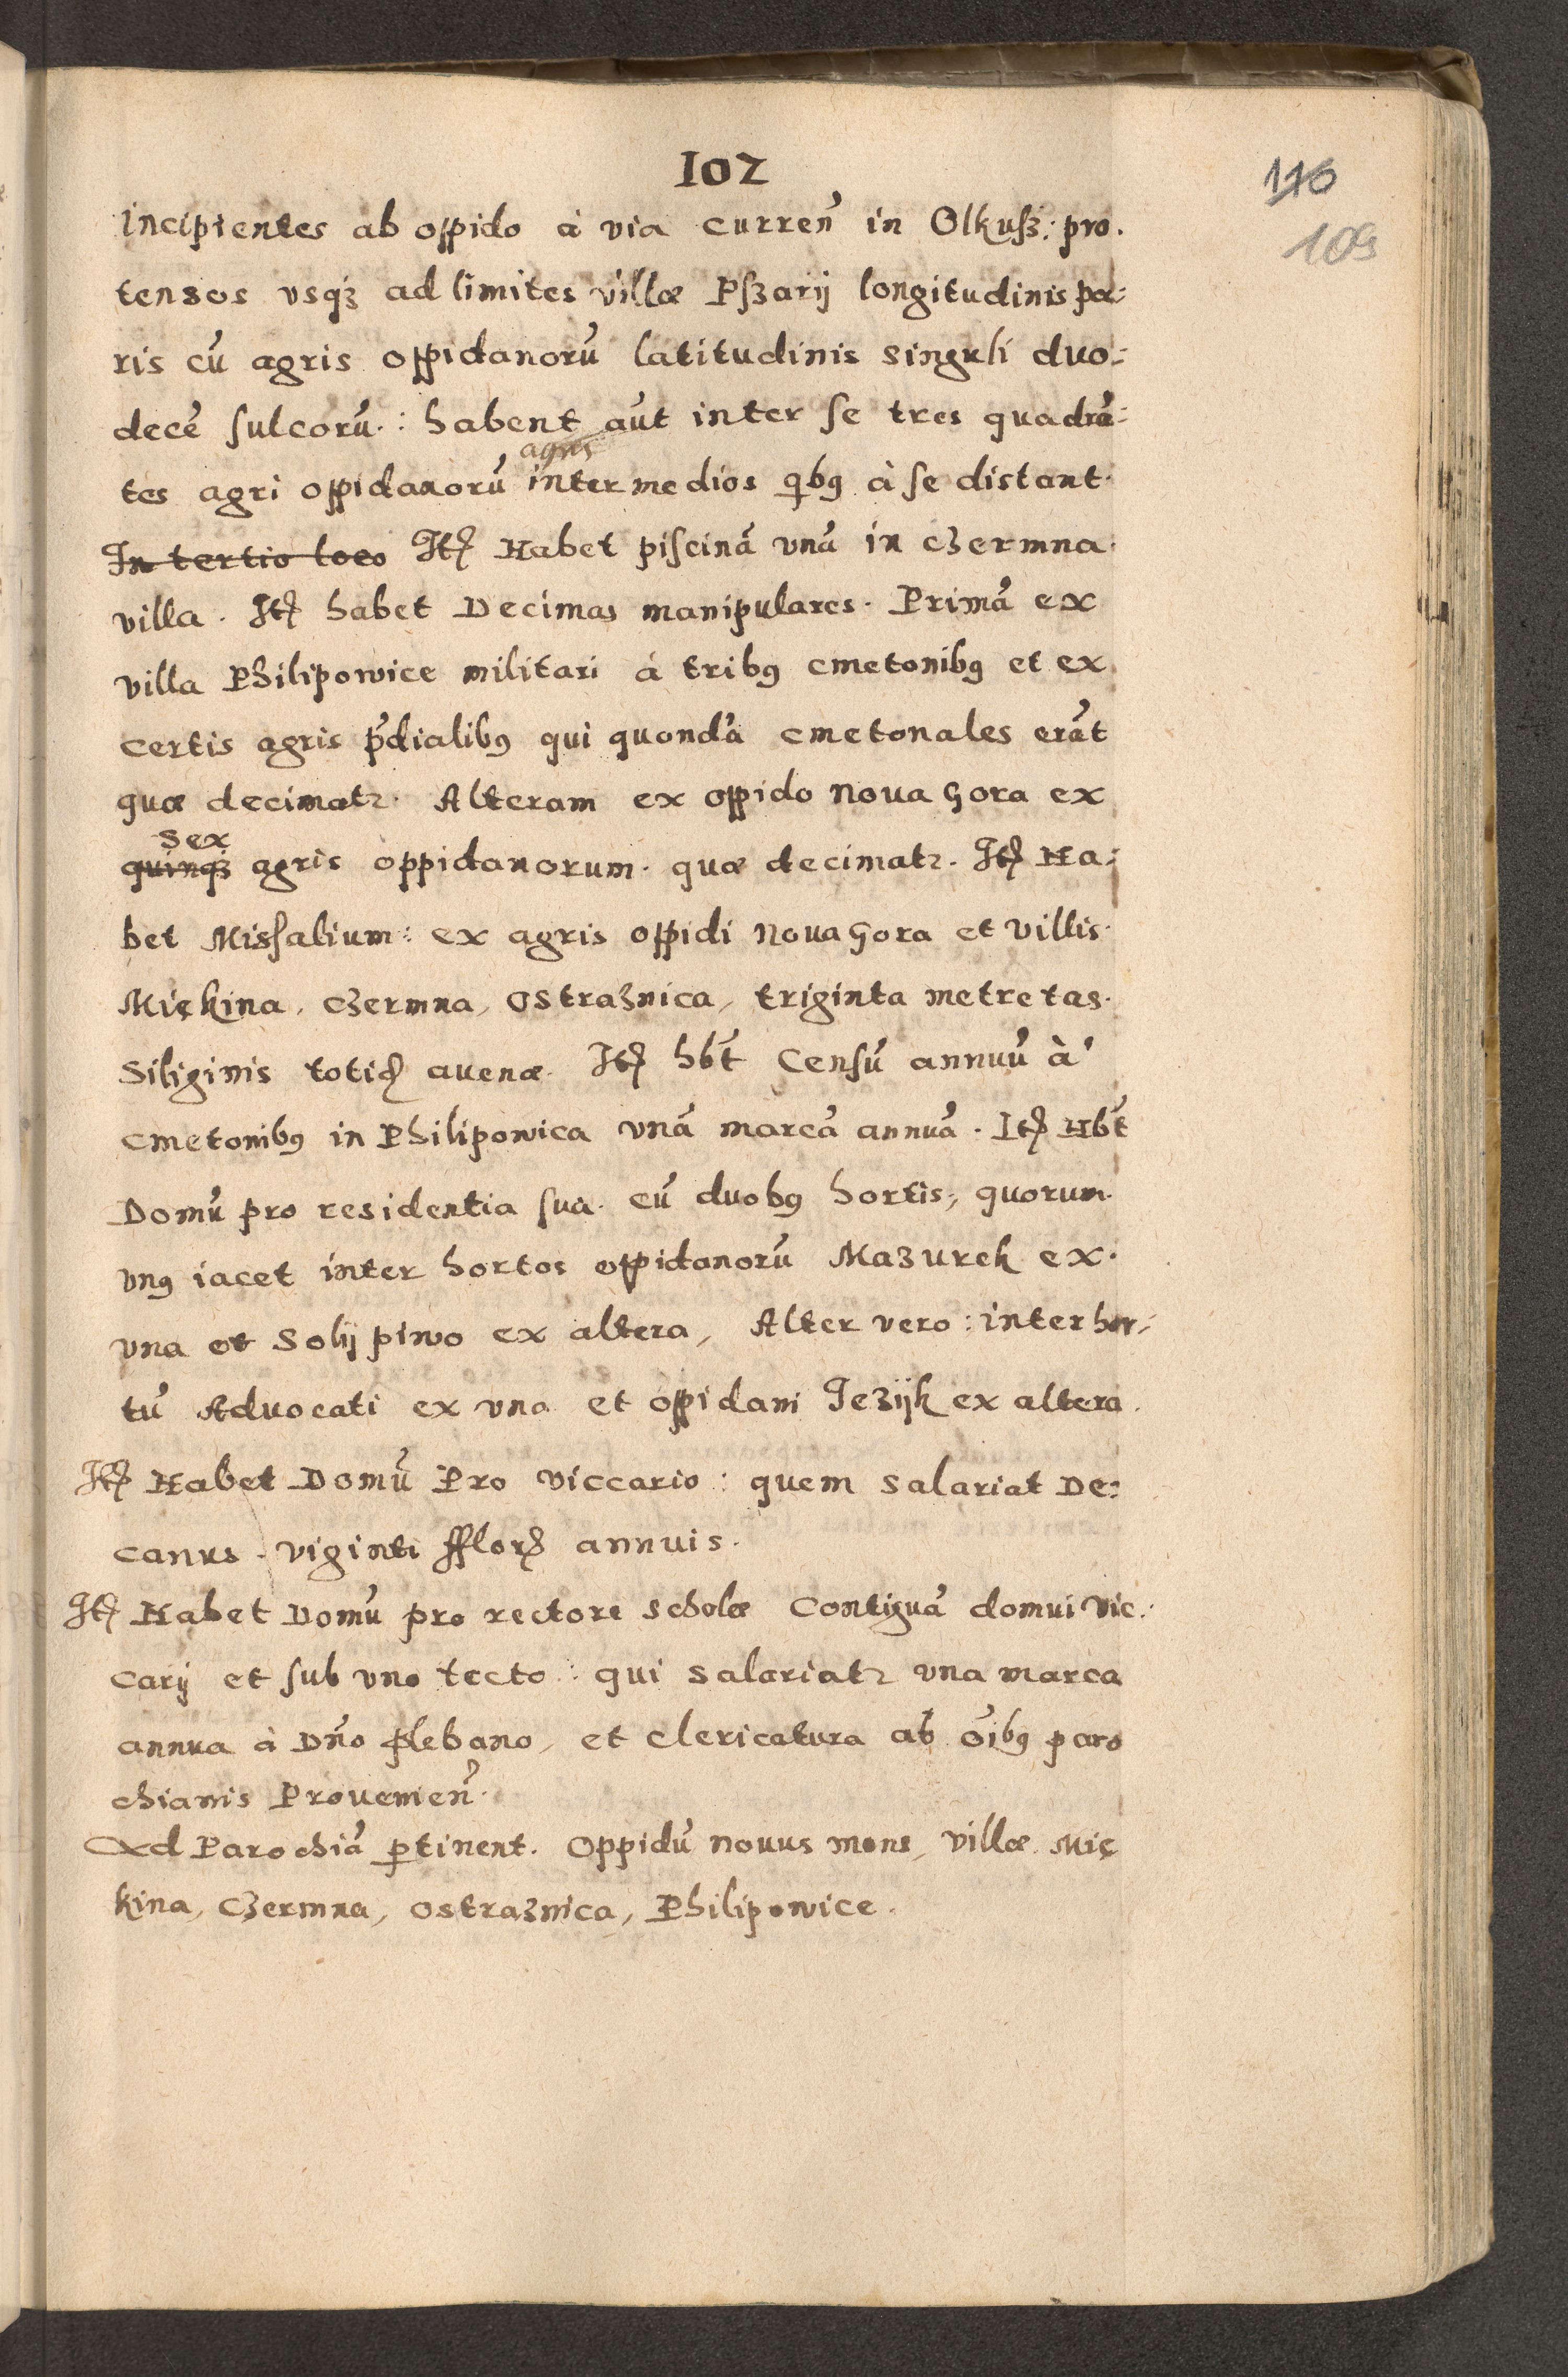 102
116
109
incipientes ab oppido à via curren̄ in Olkusz: pro.
tensos vsqꝫ ad limites villæ Pſzarij longitudinis pa:
ris cū agris oppidanorū latitudinis singuli duo:
decē ſulcorū: habent aūt inter ſe tres quadrā:
agris
tes agri oppidanorū intermedios qibꝰ à ſe distant.
In tertio loco Itꝫ Habet piſcinā vnā in Czermna
villa. Itꝫ habet Decimas manipulares. Primā ex
villa Philipowice militari à tribꝰ cmetonibꝰ et ex
certis agris p̄dialibꝰ qui quondā cmetonales erāt
quæ decimatr. Alteram ex oppido Noua Gora ex
sex
quinqꝫ agris oppidanorum. quæ decimatr. Itꝫ Ha:
bet Misſalium: ex agris oppidi Noua Gora et villis
Miękina, Czermna, Ostraznica, triginta metretas
Siliginis totidꝫ auenæ. Itꝫ hb̄t Cenſū annuū à
cmetonibꝰ in Philipowica vnā marcā annuā. Itꝫ Hb̄t
Domū pro residentia ſua. cū duobꝰ hortis, quorum
vnꝰ iacet inter hortos oppidanorū Mazurek ex
vna et Solij piwo ex altera, Alter vero: inter hor:
tū Advocati ex vna et oppidani Jezijk ex altera.
Itꝫ Habet Domū Pro viccario: quem salariat De:
canus. viginti fflorꝫ annuis.
Itꝫ Habet Domū pro rectore scholæ Contiguā domui vic:
carij et ſub vno tecto: qui salariatr vna marca
annua à Dn̄o plebano, et clericatura ab oībꝰ paro
chianis Prouenien̄.
Ad Parochiā ꝑtinent. Oppidū nouus mons, villæ Mię
kina, Czermna, Ostraznica, Philipowice.